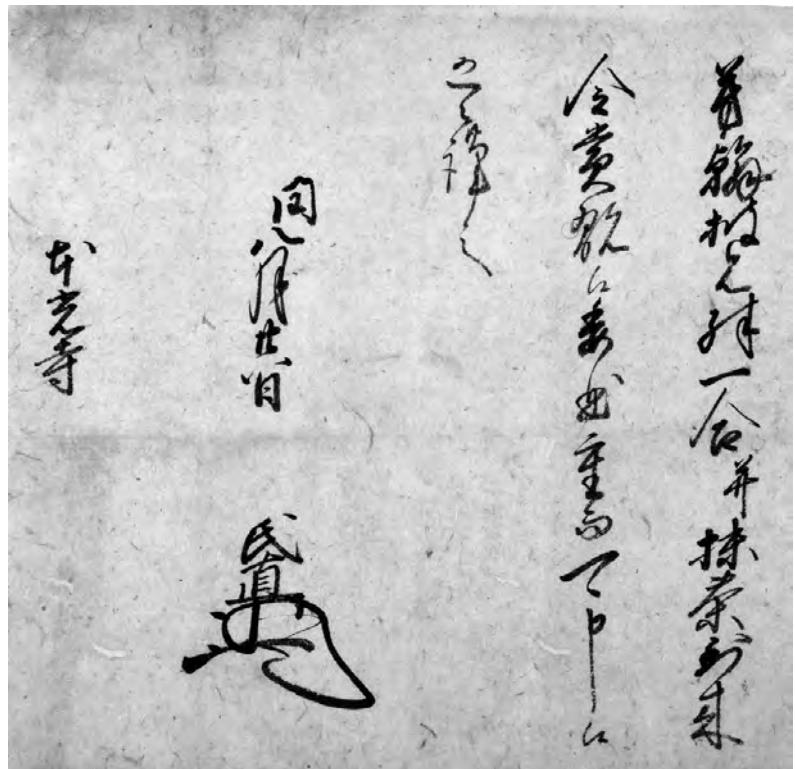 芳翰披見殊一合并抹茶到来
令賞翫候委曲重而可申候
恐々謹言
閏八月廿八日
氏真
本光寺